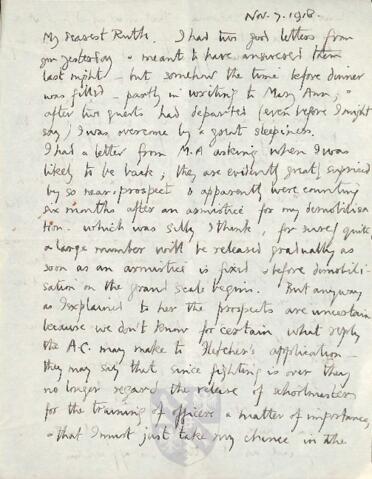 Nov. 7. 1918.
My dearest Ruth. I had two good letters from
you yesterday & meant to have answered them
last night – but somehow the time before dinner
was filled – partly in writing to Mary Ann; &
after two guests had departed (even before I might
say) I was overcome by a great sleepiness.
I had a letter from M.A asking when I was
likely to be back; they are evidently greatly surprised
by so near a prospect & apparently were counting
six months after an armistice for my demobilisa
tion – which was silly I think, for surely quite
a large number will be released gradually as
soon as an armistice is fixed & before demobili-
sation on the grand scale begins. But anyway
as I explained to her the prospects are uncertain
because we don't know for certain what reply
the A.C. may make to Fletcher's application –
they may say that since fighting is over they
no longer regard the release of schoolmasters
for the training of officers a matter of importance,
& that I must just take my chance in the